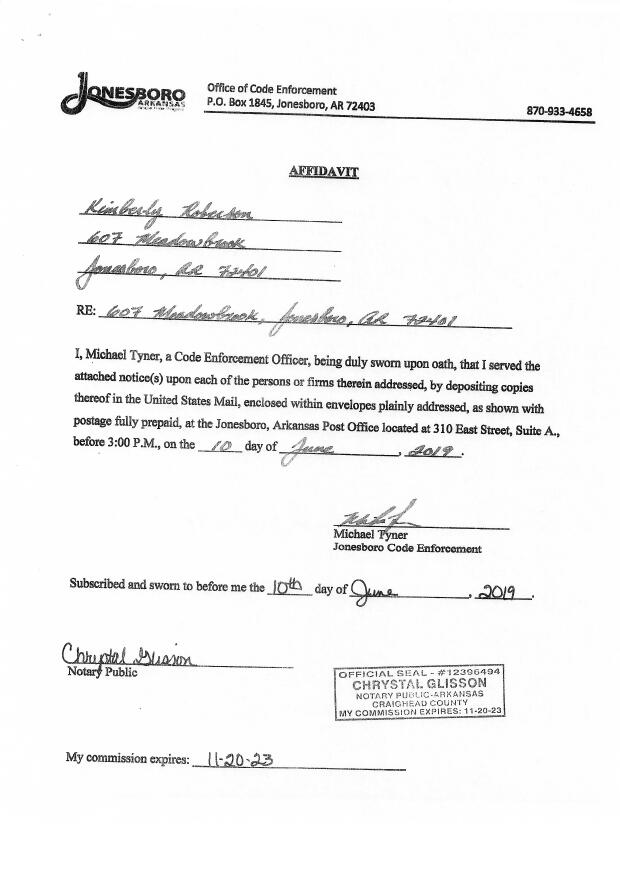 JONESBORO
ARKANSAS
Office of Code Enforcement
P.O. Box 1845, Jonesboro, AR 72403
870-933-4658
AFFIDAVIT
Kimberly Roberson
607 Meadowbrook
Jonesboro, AR 72401
RE: 607 Meadowbrook, Jonesboro, AR 72401
I, Michael Tyner, a Code Enforcement Officer, being duly sworn upon oath, that I served the
attached notice(s) upon each of the persons or firms therein addressed, by depositing copies
thereof in the United States Mail, enclosed within envelopes plainly addressed, as shown with
postage fully prepaid, at the Jonesboro, Arkansas Post Office located at 310 East Street, Suite A.,
before 3:00 P.M., on the 10 day of June, 2019.
Michael Tyner
Jonesboro Code Enforcement
Subscribed and sworn to before me the 10th day of June, 2019.
Chrystal Glisson
Notary Public
OFFICIAL SEAL - #12396494
CHRYSTAL GLISSON
NOTARY PUBLIC-ARKANSAS
CRAIGHEAD COUNTY
MY COMMISSION EXPIRES: 11-20-23
My commission expires: 11-20-23